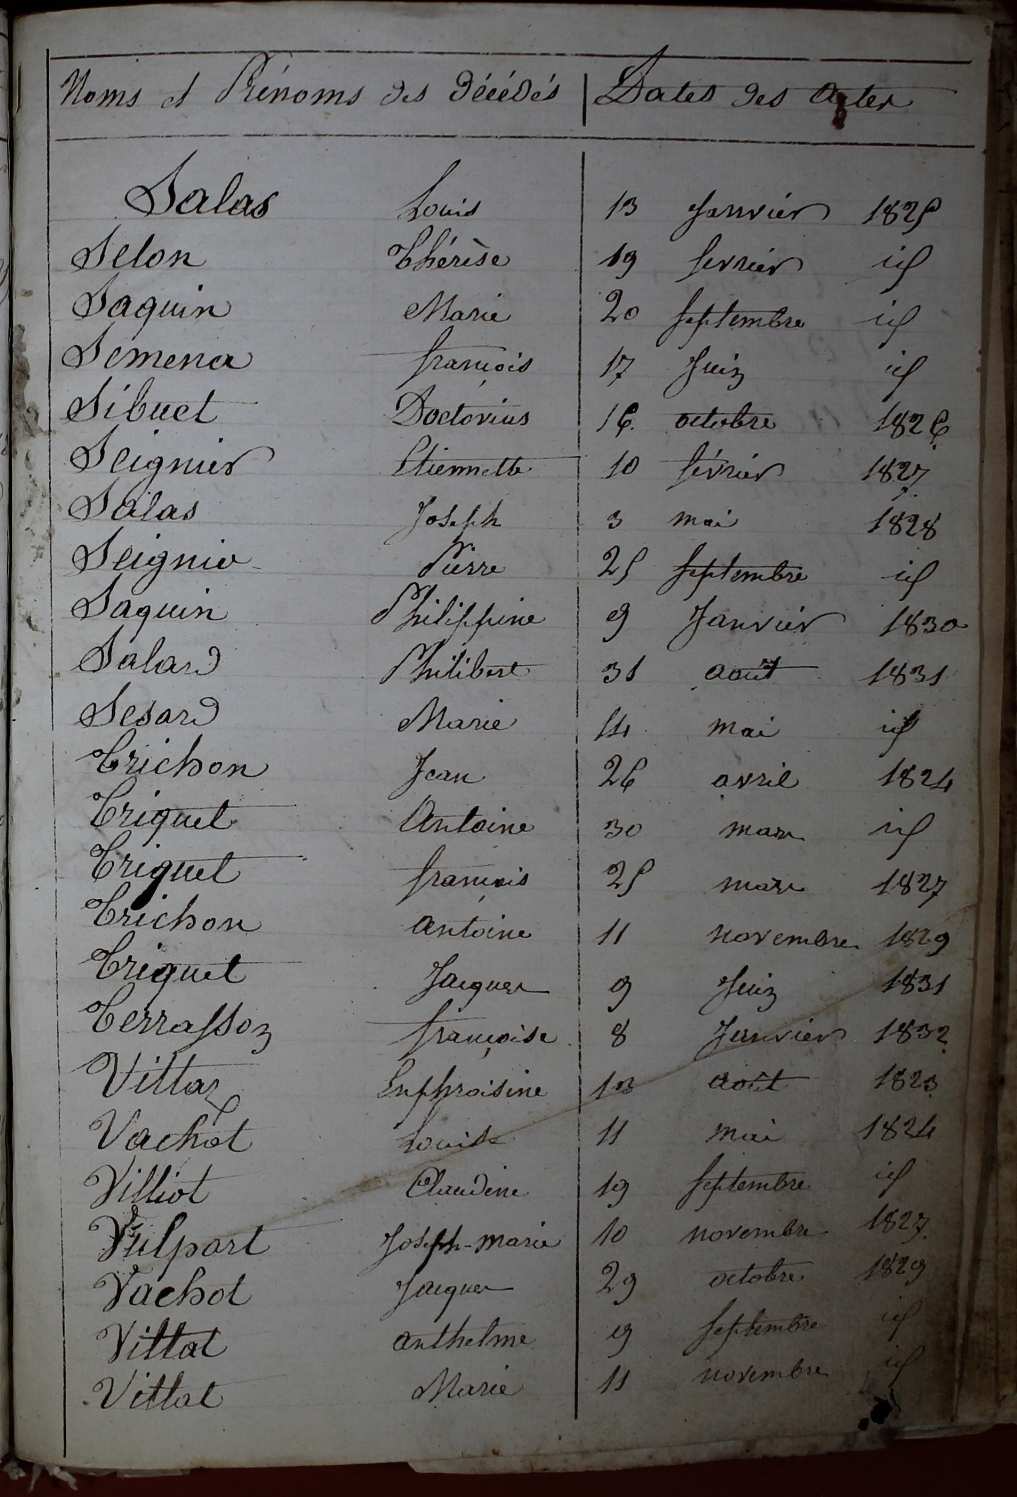 Noms et Prénoms des décédés Dates des Actes
Salas Louis 13 Janvier 1825
Selon Thérèse 19 fevrier id
Saquin Marie 20 Septembre id
Semena françois 17 Juin id
Sibuet Doctorius 16 octobre 1826
Seignier Etiennette 10 février 1827
Salas Joseph 3 mai 1828
Seignier Pierre 25 Septembre id
Saquin Philippine 9 Janvier 1830
Salard Philibert 31 août 1831
Sesard Marie 14 mai id
Trichon Jean 26 avril 1824
Triquet Antoine 30 mars id
Triquet francois 25 mars 1827
Trichon antoine 11 novembre 1829
Triquet Jacques 9 Juin 1831
Terrasson françoise 8 Janvier 1832
Vittoz Euphroisine 13 août 1823
Vachot Louise 11 mai 1824
Villiot Claudine 19 Septembre id
Vulpart Joseph-marie 10 novembre 1827
Vachot Jacques 29 octobre 1829
Villat anthelme 19 Septembre id
Villat Marie 11 novembre id